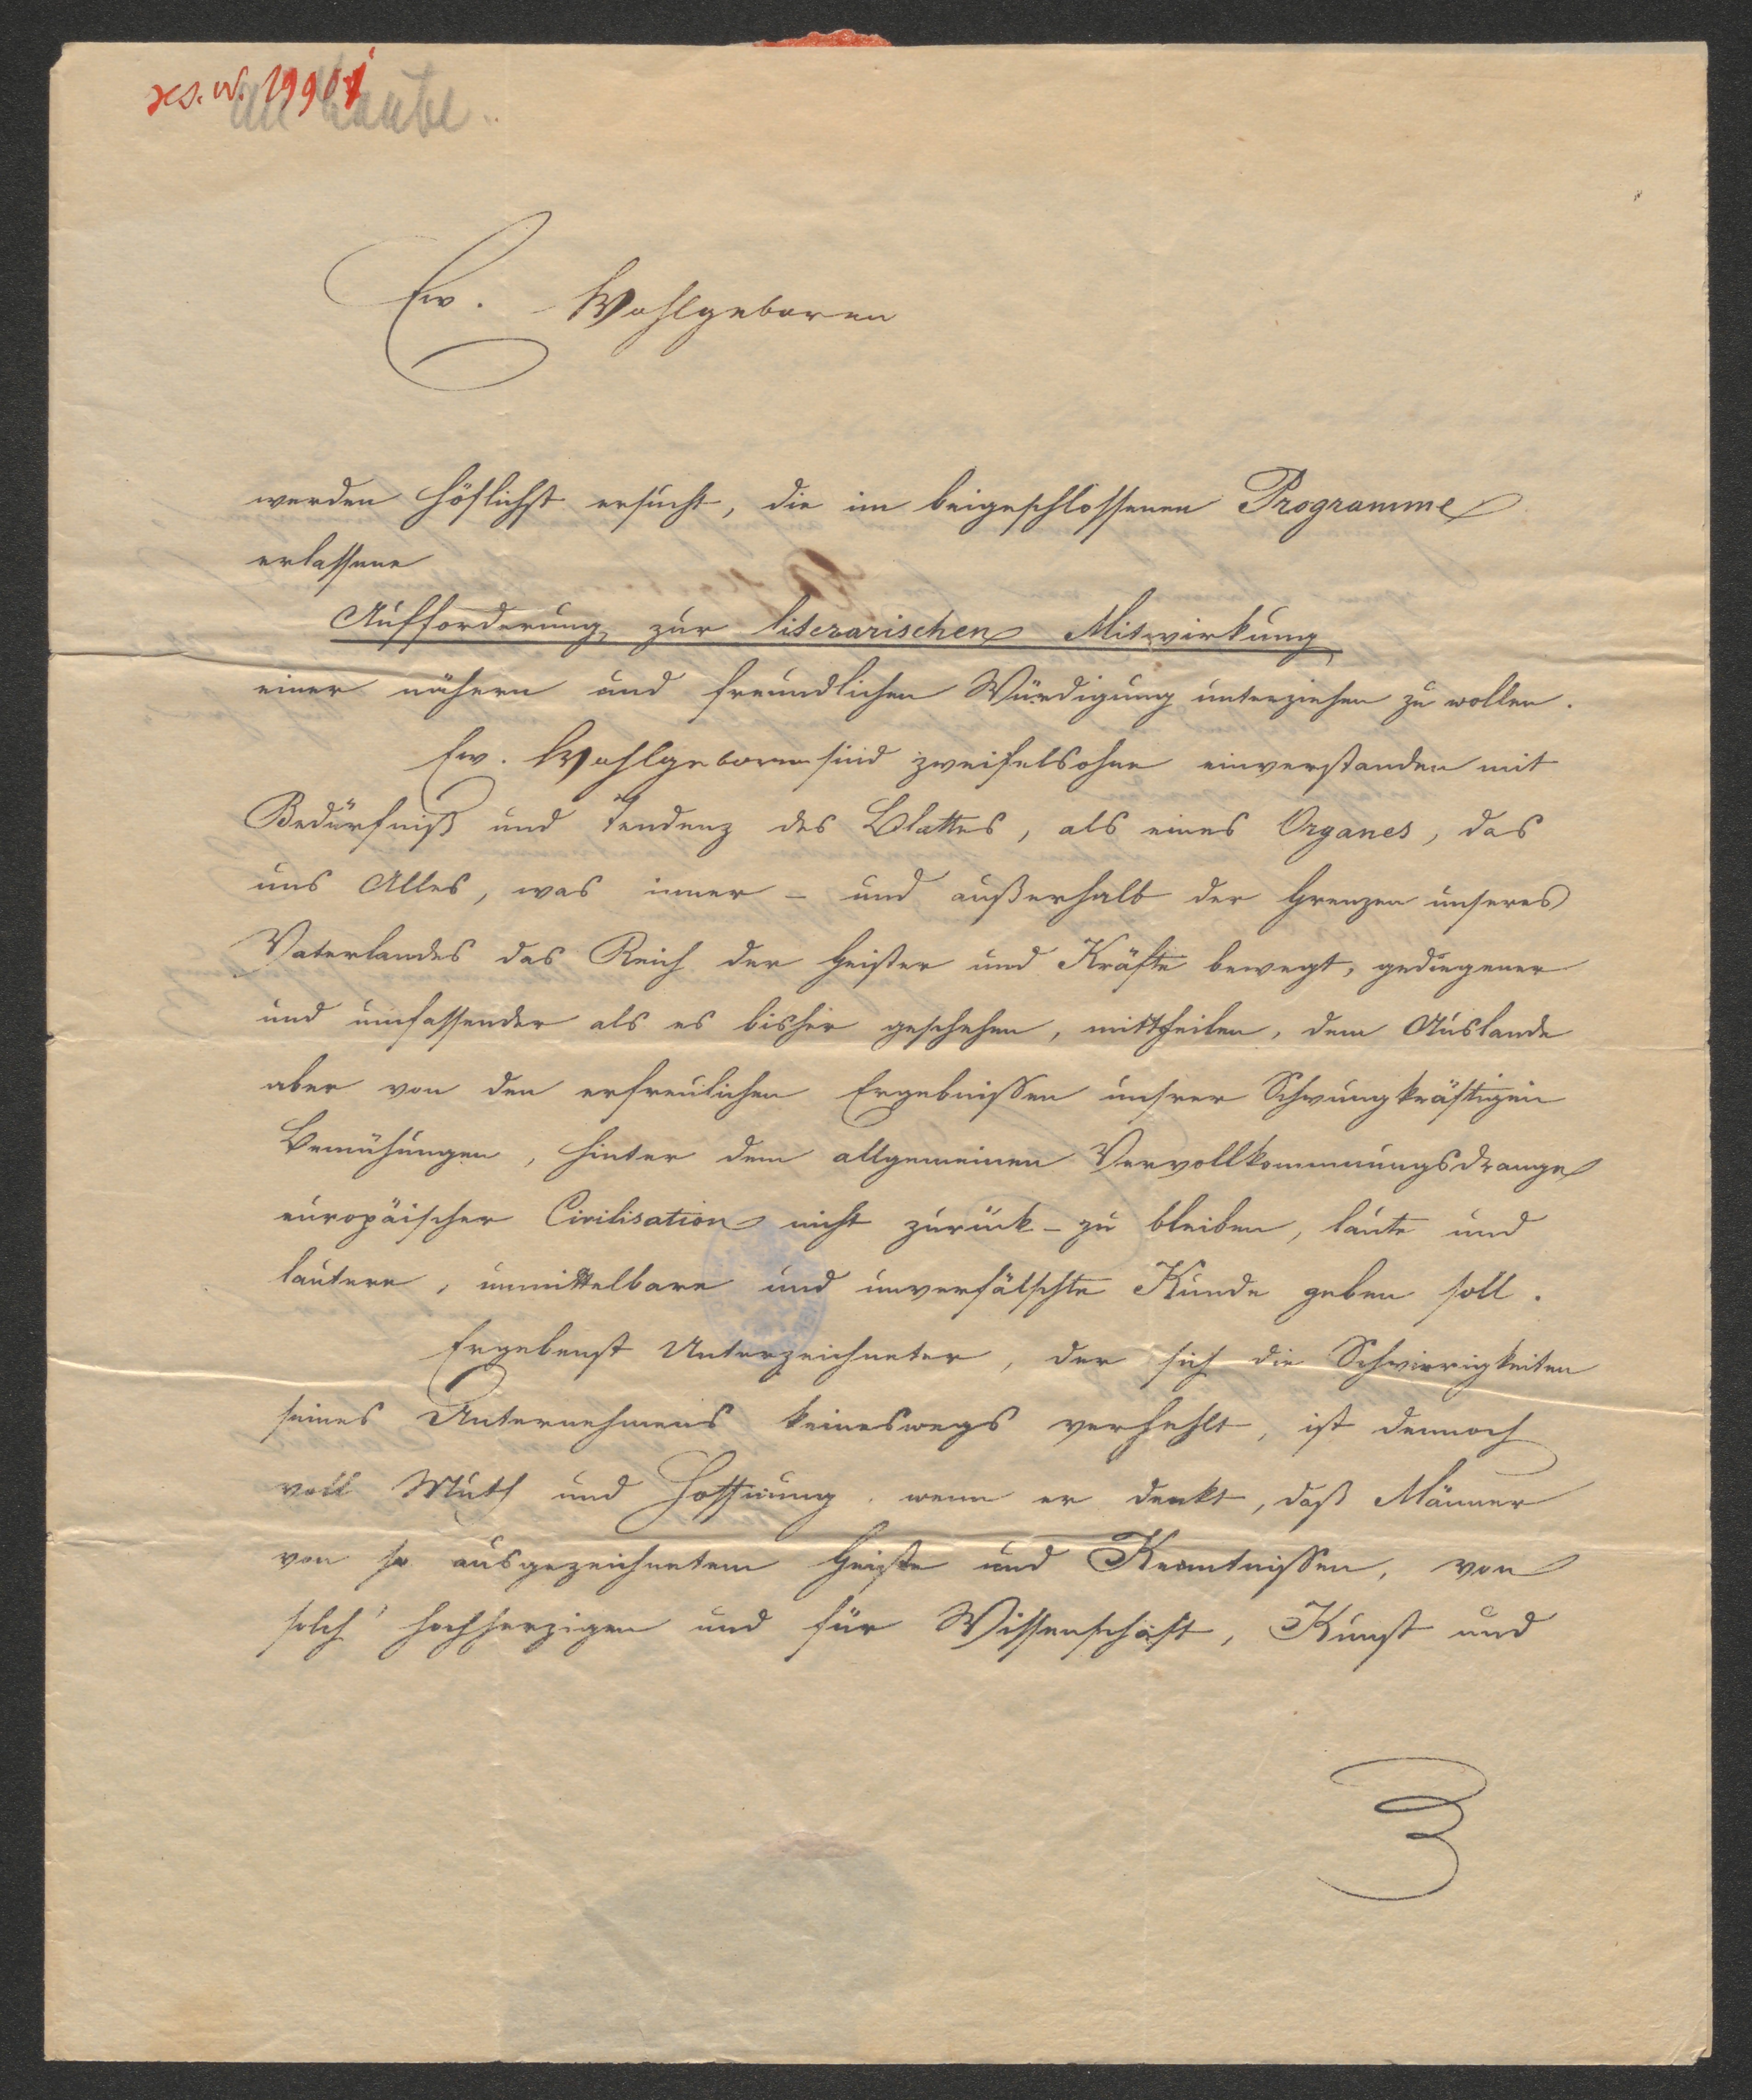 an Laube.
Ew. Wohlgeboren
werden höflichst ersucht, die im beigeschlossenen Programme
erlassene
Aufforderung zur literarischen Mitwirkung
einer nähern und freundlichen Würdigung unterziehen zu wollen.
Ew. Wohlgeboren sind zweifelsohne einverstanden mit
Bedürfniß und Tendenz des Blattes, als eines Organes, das
uns Alles, was inner- und außerhalb der Grenzen unseres
Vaterlandes das Reich der Geister und Kräfte bewegt, gediegener
und umfassender als es bisher geschehen, mittheilen, dem Auslande
aber von den erfreulichen Ergebnissen unsrer Schwungkräftigen
Bemühungen, hinter dem allgemeinen Vervollkommnungsdrange
europäischer Civilisation nicht zurück-zu bleiben, laute und
lautere, unmittelbare und unverfälschte Kunde geben soll.
Ergebenst Unterzeichneter, der sich die Schwierigkeiten
seines Unternehmens keineswegs verhehlt, ist dennoch
voll Muth und Hoffnung, wenn er denkt, daß Männer
von so ausgezeichnetem Geiste und Kenntnissen, von
solch' hochherzigen und für Wissenschaft, Kunst und